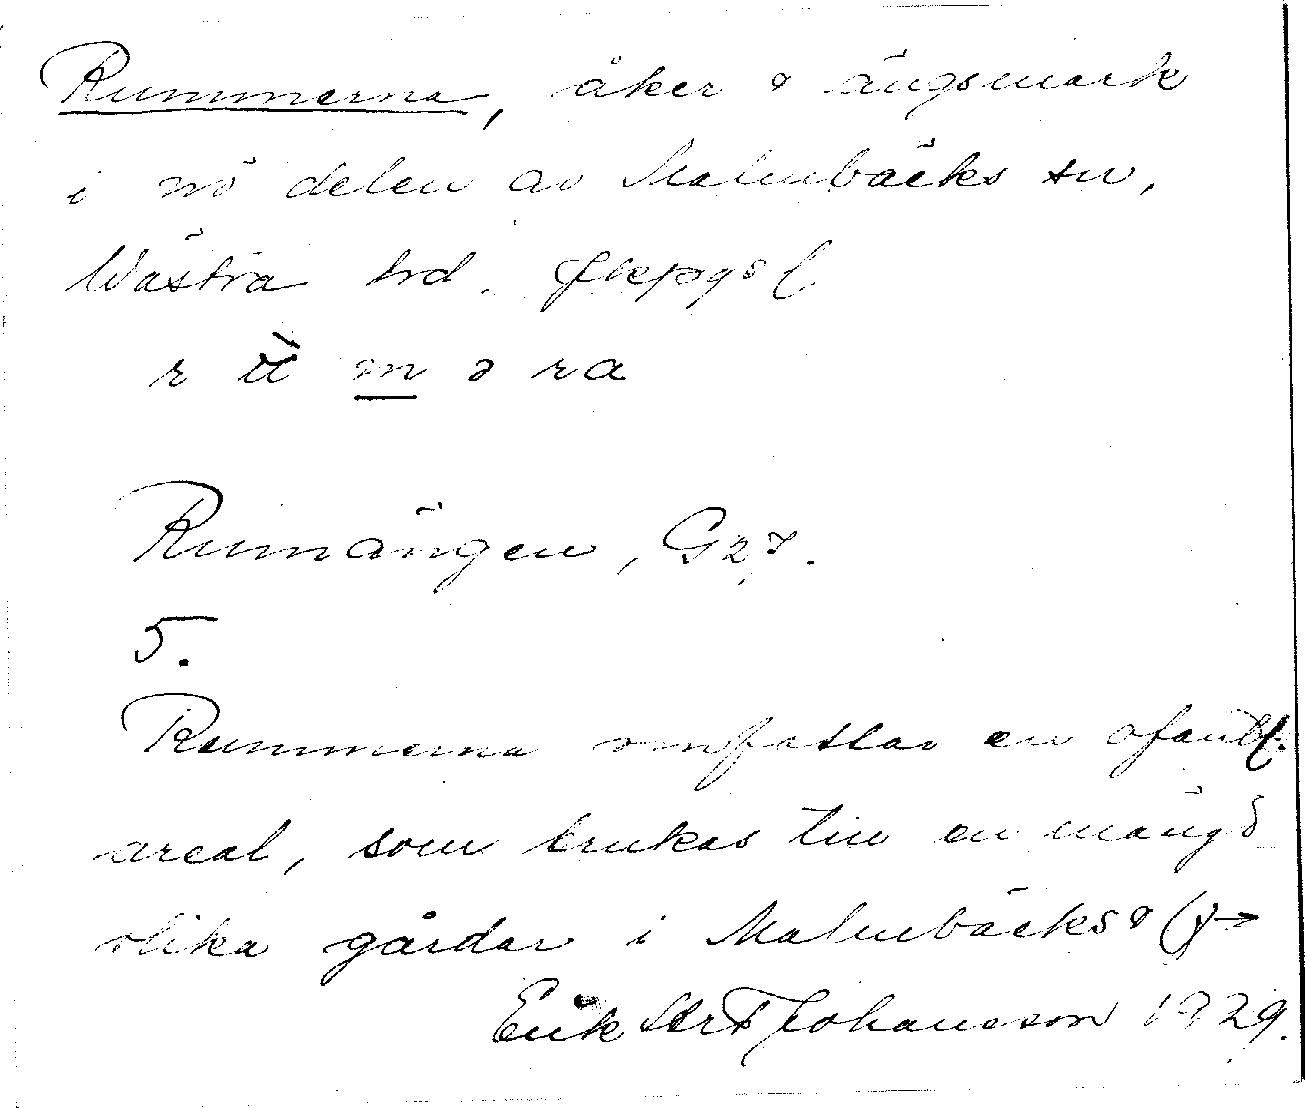 Rummerna, åker & ängsmark
i nö delen av Malmbäcks sn,
Västra hrd.
r ŭ̀ m ə ra
Rumängen, G27.
5.
Rummerna omfattar en ofantl.
areal, som brukas till en mängd
olika gårdar i Malmbäcks &
Erik Johansson 1929.